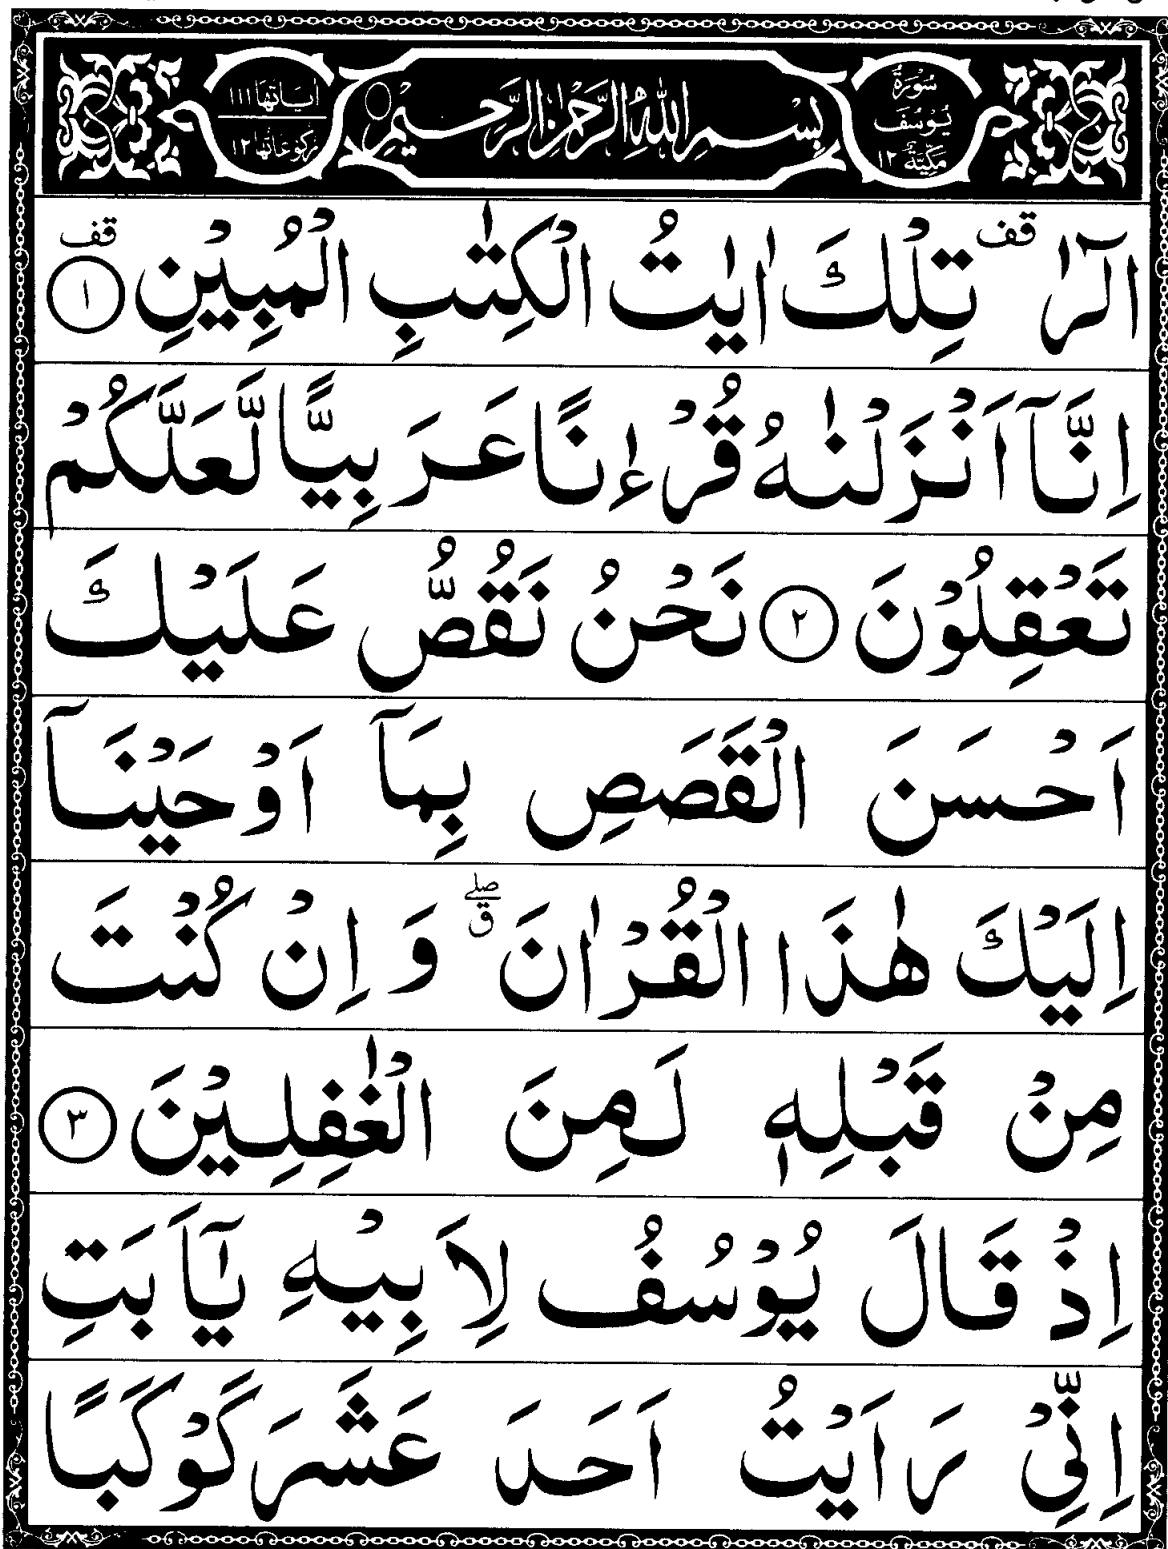 سُوْرَةُ يُوْسُفَ مَكِّيَّةٌ ١٢
بِسْمِ اللّٰهِ الرَّحْمٰنِ الرَّحِيْمِ
اٰيَاتُهَا ١١١
رُكُوْعَاتُهَا ١٢
الٓرٰ ۟ قف تِلْكَ اٰيٰتُ الْكِتٰبِ الْمُبِيْنِ ١ قف
اِنَّآ اَنْزَلْنٰهُ قُرْءٰنًا عَرَبِيًّا لَّعَلَّكُمْ
تَعْقِلُوْنَ ٢ نَحْنُ نَقُصُّ عَلَيْكَ
اَحْسَنَ الْقَصَصِ بِمَآ اَوْحَيْنَآ
اِلَيْكَ هٰذَا الْقُرْاٰنَ صلے ق وَ اِنْ كُنْتَ
مِنْ قَبْلِهٖ لَمِنَ الْغٰفِلِيْنَ ٣
اِذْ قَالَ يُوْسُفُ لِاَبِيْهِ يٰٓاَبَتِ
اِنِّيْ رَاَيْتُ اَحَدَ عَشَرَ كَوْكَبًا